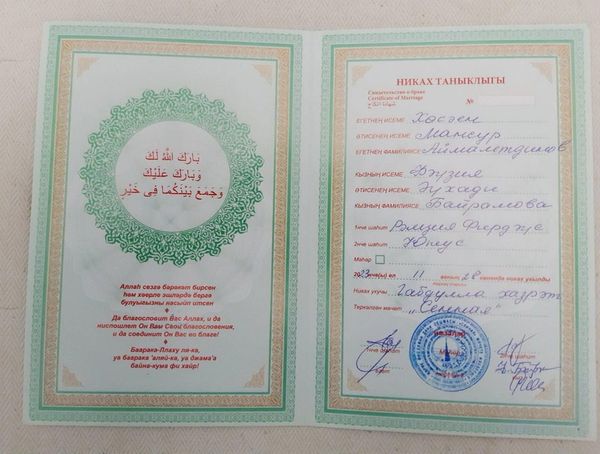 بَارَكَ اللَّهُ لَكَ
وَبَارَكَ عَلَيْكَ
وَجَمَعَ بَيْنَكُمَا فِي خَيْرٍ
Аллаһ сезгә бәрәкәт бирсен
һәм хәерле эшләрдә бергә
булуыгызны насыйп итсен
Да благословит Вас Аллах, и да
ниспошлет Он Вам Своё благословения,
и да соединит Он Вас во благе!
Баарака-Ллаху ля-ка,
уа баарака 'аляй-ка, уа джама'а
байна-кума фи хайр!
НИКАХ ТАНЫКЛЫГЫ
Свидетельство о браке
Certificate of Marriage
شهادة النكاح
№
ЕГЕТНЕҢ ИСЕМЕ Хәсәен
ӘТИСЕНЕҢ ИСЕМЕ Мансур
ЕГЕТНЕҢ ФАМИЛИЯСЕ Аймалетдинов
КЫЗНЫҢ ИСЕМЕ Фәузия
ӘТИСЕНЕҢ ИСЕМЕ
КЫЗНЫҢ ФАМИЛИЯСЕ Байрамова
1нче шаһит
2нче шаһит Юнус
Мәһәр
2023нче(ы) ел 11 аеның 28 көнендә никах укылды
Никах укучы Габдулла хәзрәт
Теркәлгән мәчет "Сенная"
1нче шаһит